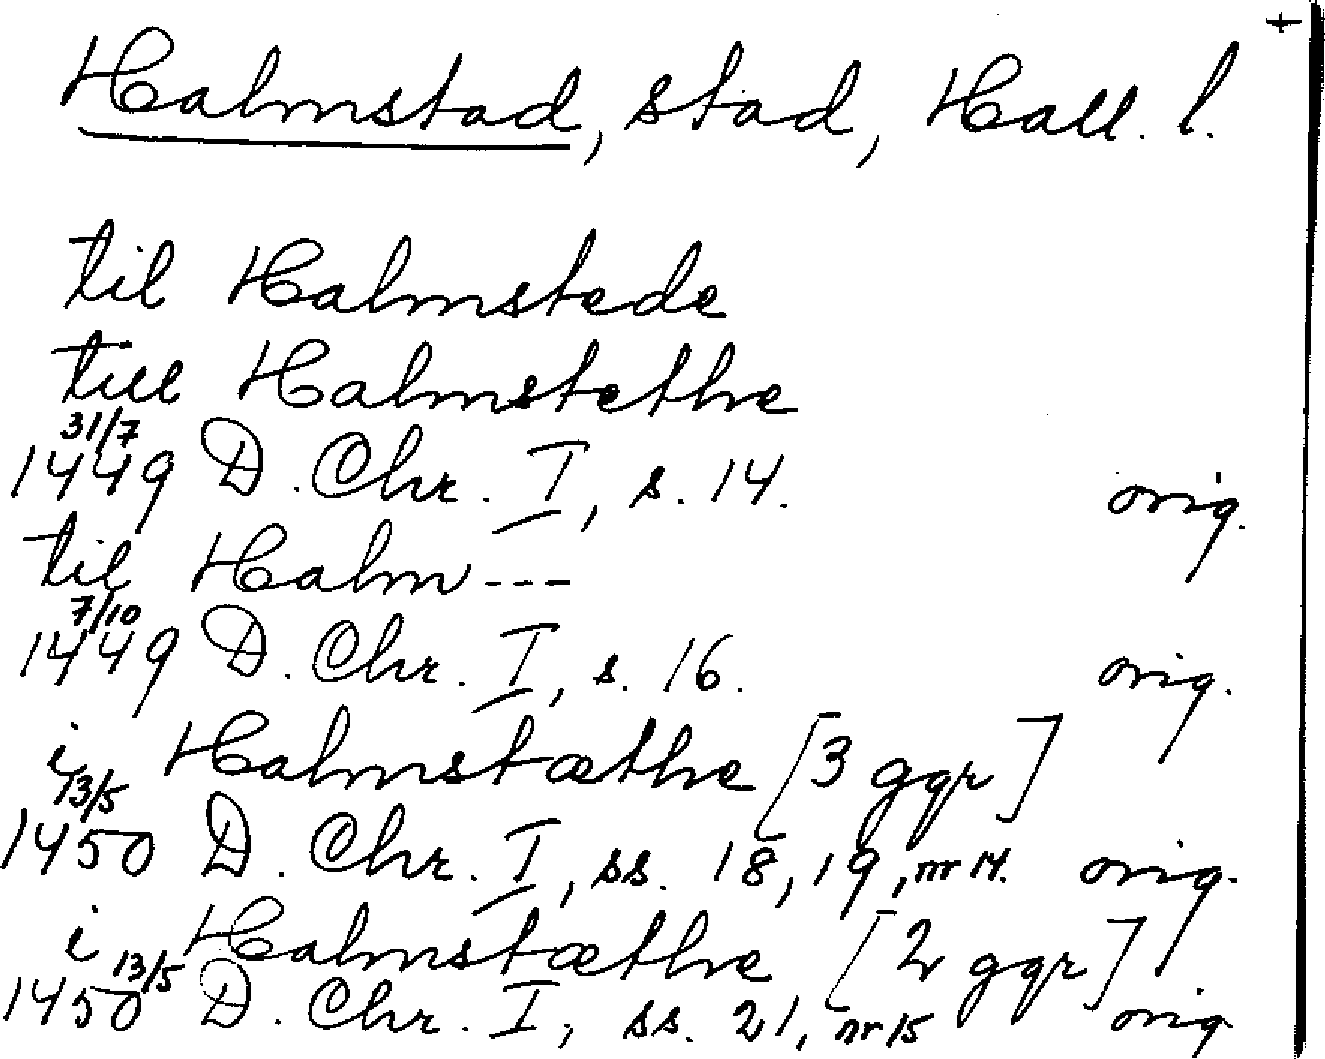 +
Halmstad, stad, Hall. l.
til Halmstede
till Halmstethe
31/7
1449 D. Chr. I, s. 14. orig.
til Halm---
7/10
1449 D. Chr. I, s. 16. orig.
i Halmstæthe [3 ggr]
13/5
1450 D. Chr. I, ss. 18, 19, nr 14. orig.
i Halmstæthe [2 ggr]
13/5
1450 D. Chr. I, ss. 21, nr 15 orig